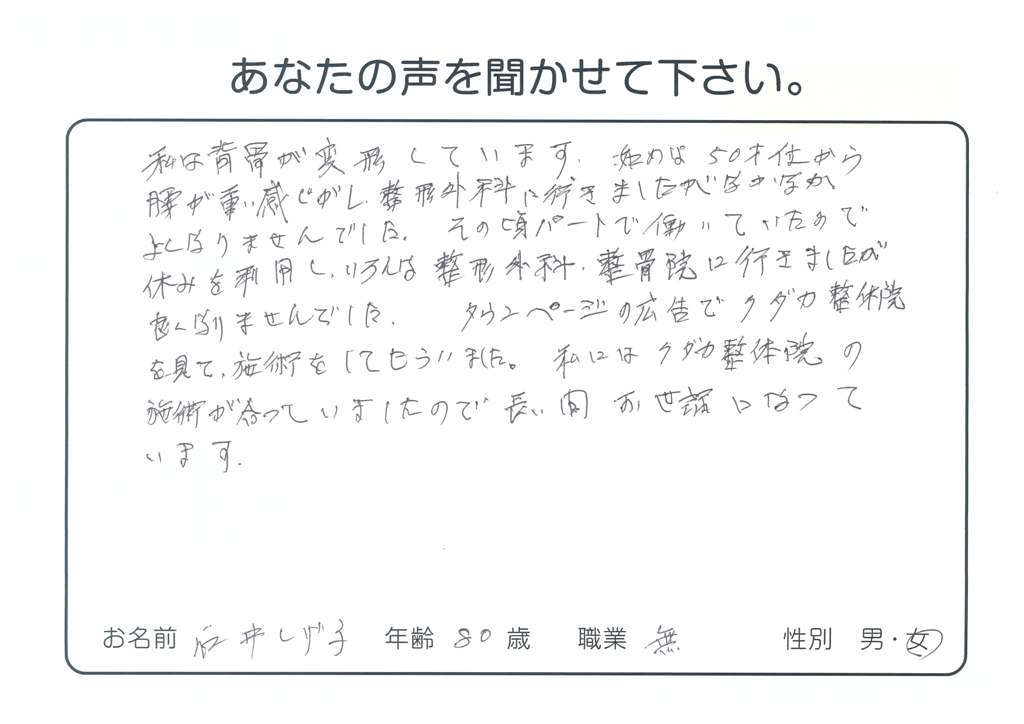 あなたの声を聞かせて下さい。
私は背骨が変形しています. 始めは50才位から
腰が重い感じがし、整形外科に行きましたがなかなか
よくなりませんでした. その頃パートで働いていたので
休みを利用し、いろんな整形外科・整骨院に行きましたが
良くなりませんでした. タウンページの広告でクダカ整体院
を見て、施術をしてもらいました。私にはクダカ整体院の
施術が合っていましたので長い間お世話になって
います.
お名前 井しげ子 年齢 80 歳 職業 無 性別 男・女